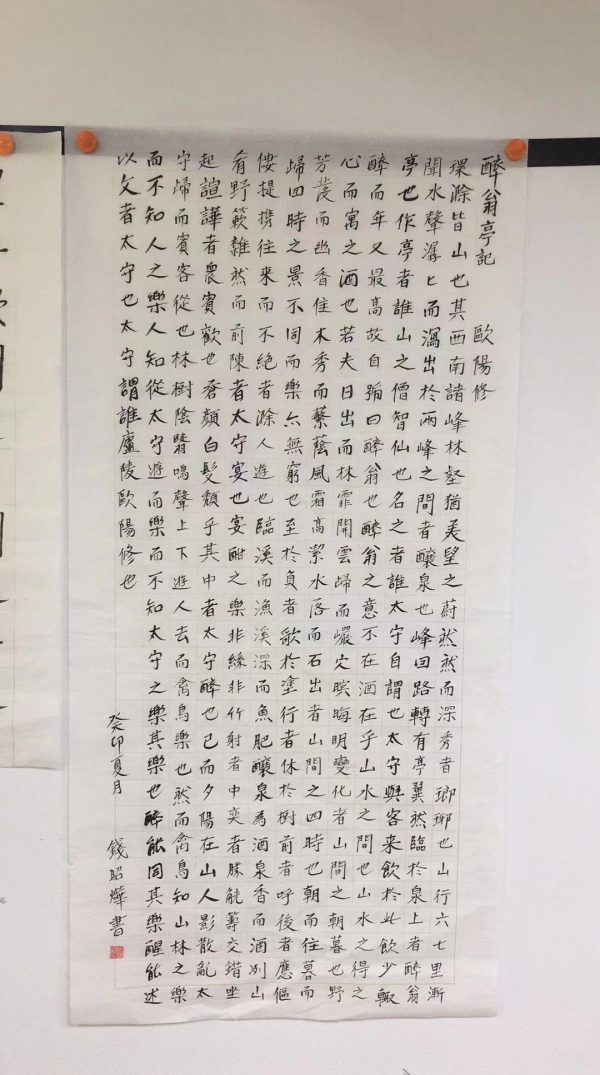 醉翁亭記 歐陽修
環滁皆山也其西南諸峰林壑猶美望之蔚然然而深秀者瑯琊也山行六七里漸
聞水聲潺〻而瀉出於兩峰之間者釀泉也峰回路轉有亭翼然臨於泉上者醉翁
亭也作亭者誰山之僧智仙也名之者誰太守自謂也太守與客来飲於此飲少輒
醉而年又最高故自號曰醉翁也醉翁之意不在酒在乎山水之間也山水之得之
心而寓之酒也若夫日出而林霏開雲歸而巖穴暝晦明變化者山間之朝暮也野
芳發而幽香佳木秀而蘩蔭風霜高絜水落而石出者山間之四時也朝而往暮而
歸四時之景不同而樂亦無窮也至於負者歌於塗行者休於樹前者呼後者應傴
僂提携往来而不絕者滁人遊也臨溪而漁溪深而魚肥釀泉為酒泉香而酒洌山
肴野簌雜然而前陳者太守宴也宴酣之樂非絲非竹射者中奕者勝觥籌交錯坐
起諠譁者農賓歡也蒼顏白髮頹乎其中者太守醉也已而夕陽在山人影散亂太
守歸而賓客從也林樹陰翳鳴聲上下遊人去而禽鳥樂也然而禽鳥知山林之樂
而不知人之樂人知從太守遊而樂而不知太守之樂其樂也醉能同其樂醒能述
以文者太守也太守謂誰廬陵歐陽修也
癸卯夏月 錢昭燁書